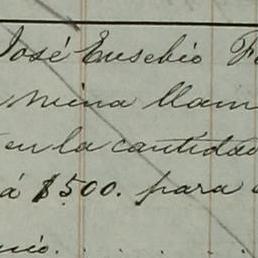 José Eusebio F
mina llam
en la cantidad
á $500. para